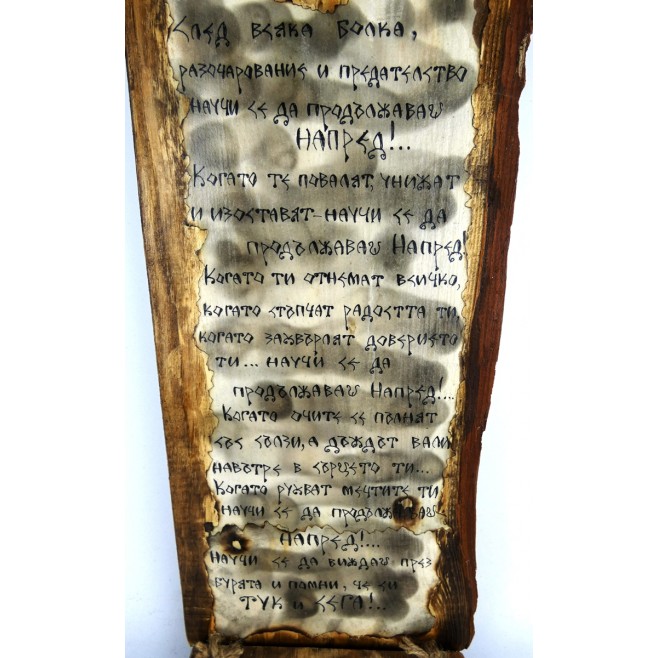 След всяка болка,
разочарование и предателство
научи се да продължаваш
Напред!..
Когато те повалят, унижат
и изоставят - научи се да
продължаваш Напред!
Когато ти отнемат всичко,
когато стъпчат радостта ти,
когато захвърлят доверието
ти... научи се да
продължаваш Напред!...
Когато очите се пълнят
със сълзи, а дъждът вали
навътре в сърцето ти...
Когато рушат мечтите ти
научи се да продължаваш
Напред!...
Научи се да виждаш през
бурята и помни, че си
ТУК и СЕГА!..